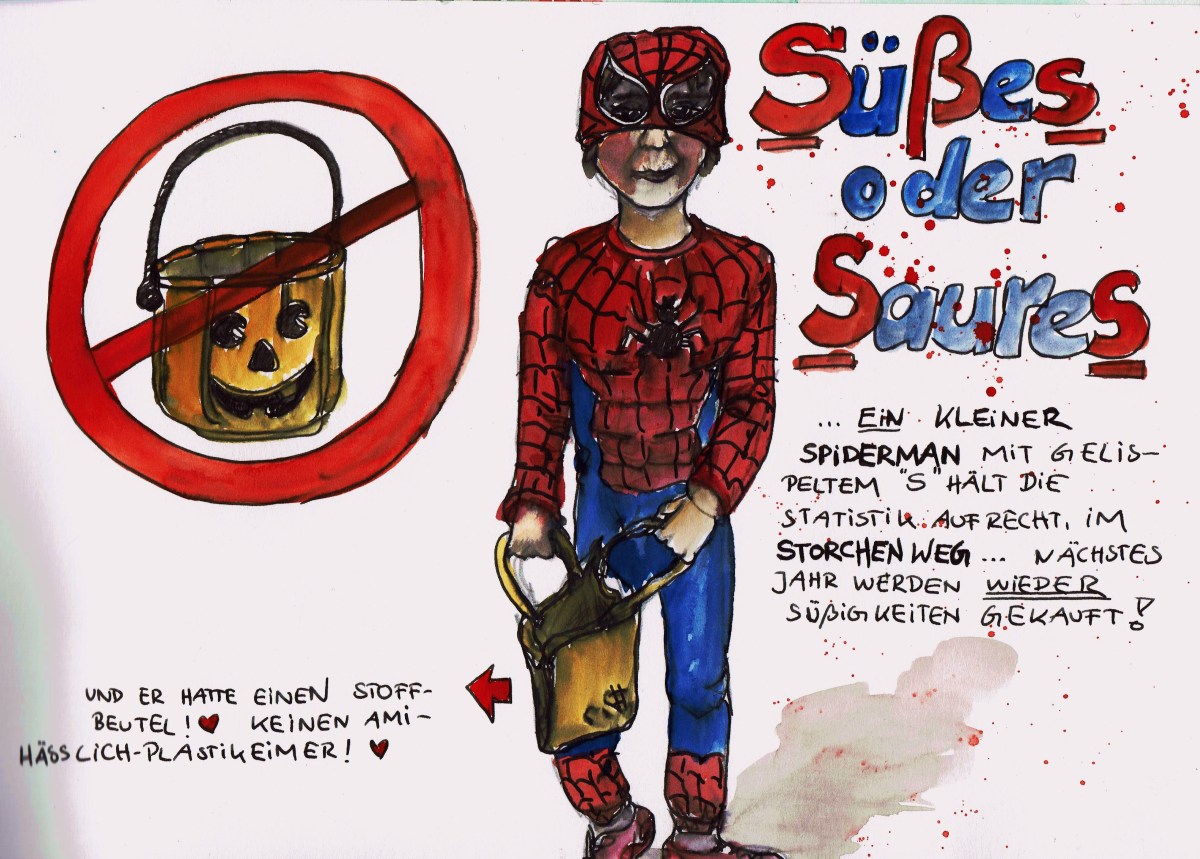 Süßes
oder
Saures
... EIN KLEINER
SPIDERMAN MIT GELIS-
PELTEM "S" HÄLT DIE
STATISTIK AUFRECHT, IM
STORCHENWEG ... NÄCHSTES
JAHR WERDEN WIEDER
SÜßIGKEITEN GEKAUFT!
UND ER HATTE EINEN STOFF-
BEUTEL! ♥ KEINEN AMI-
HÄSSLICH-PLASTIKEIMER! ♥